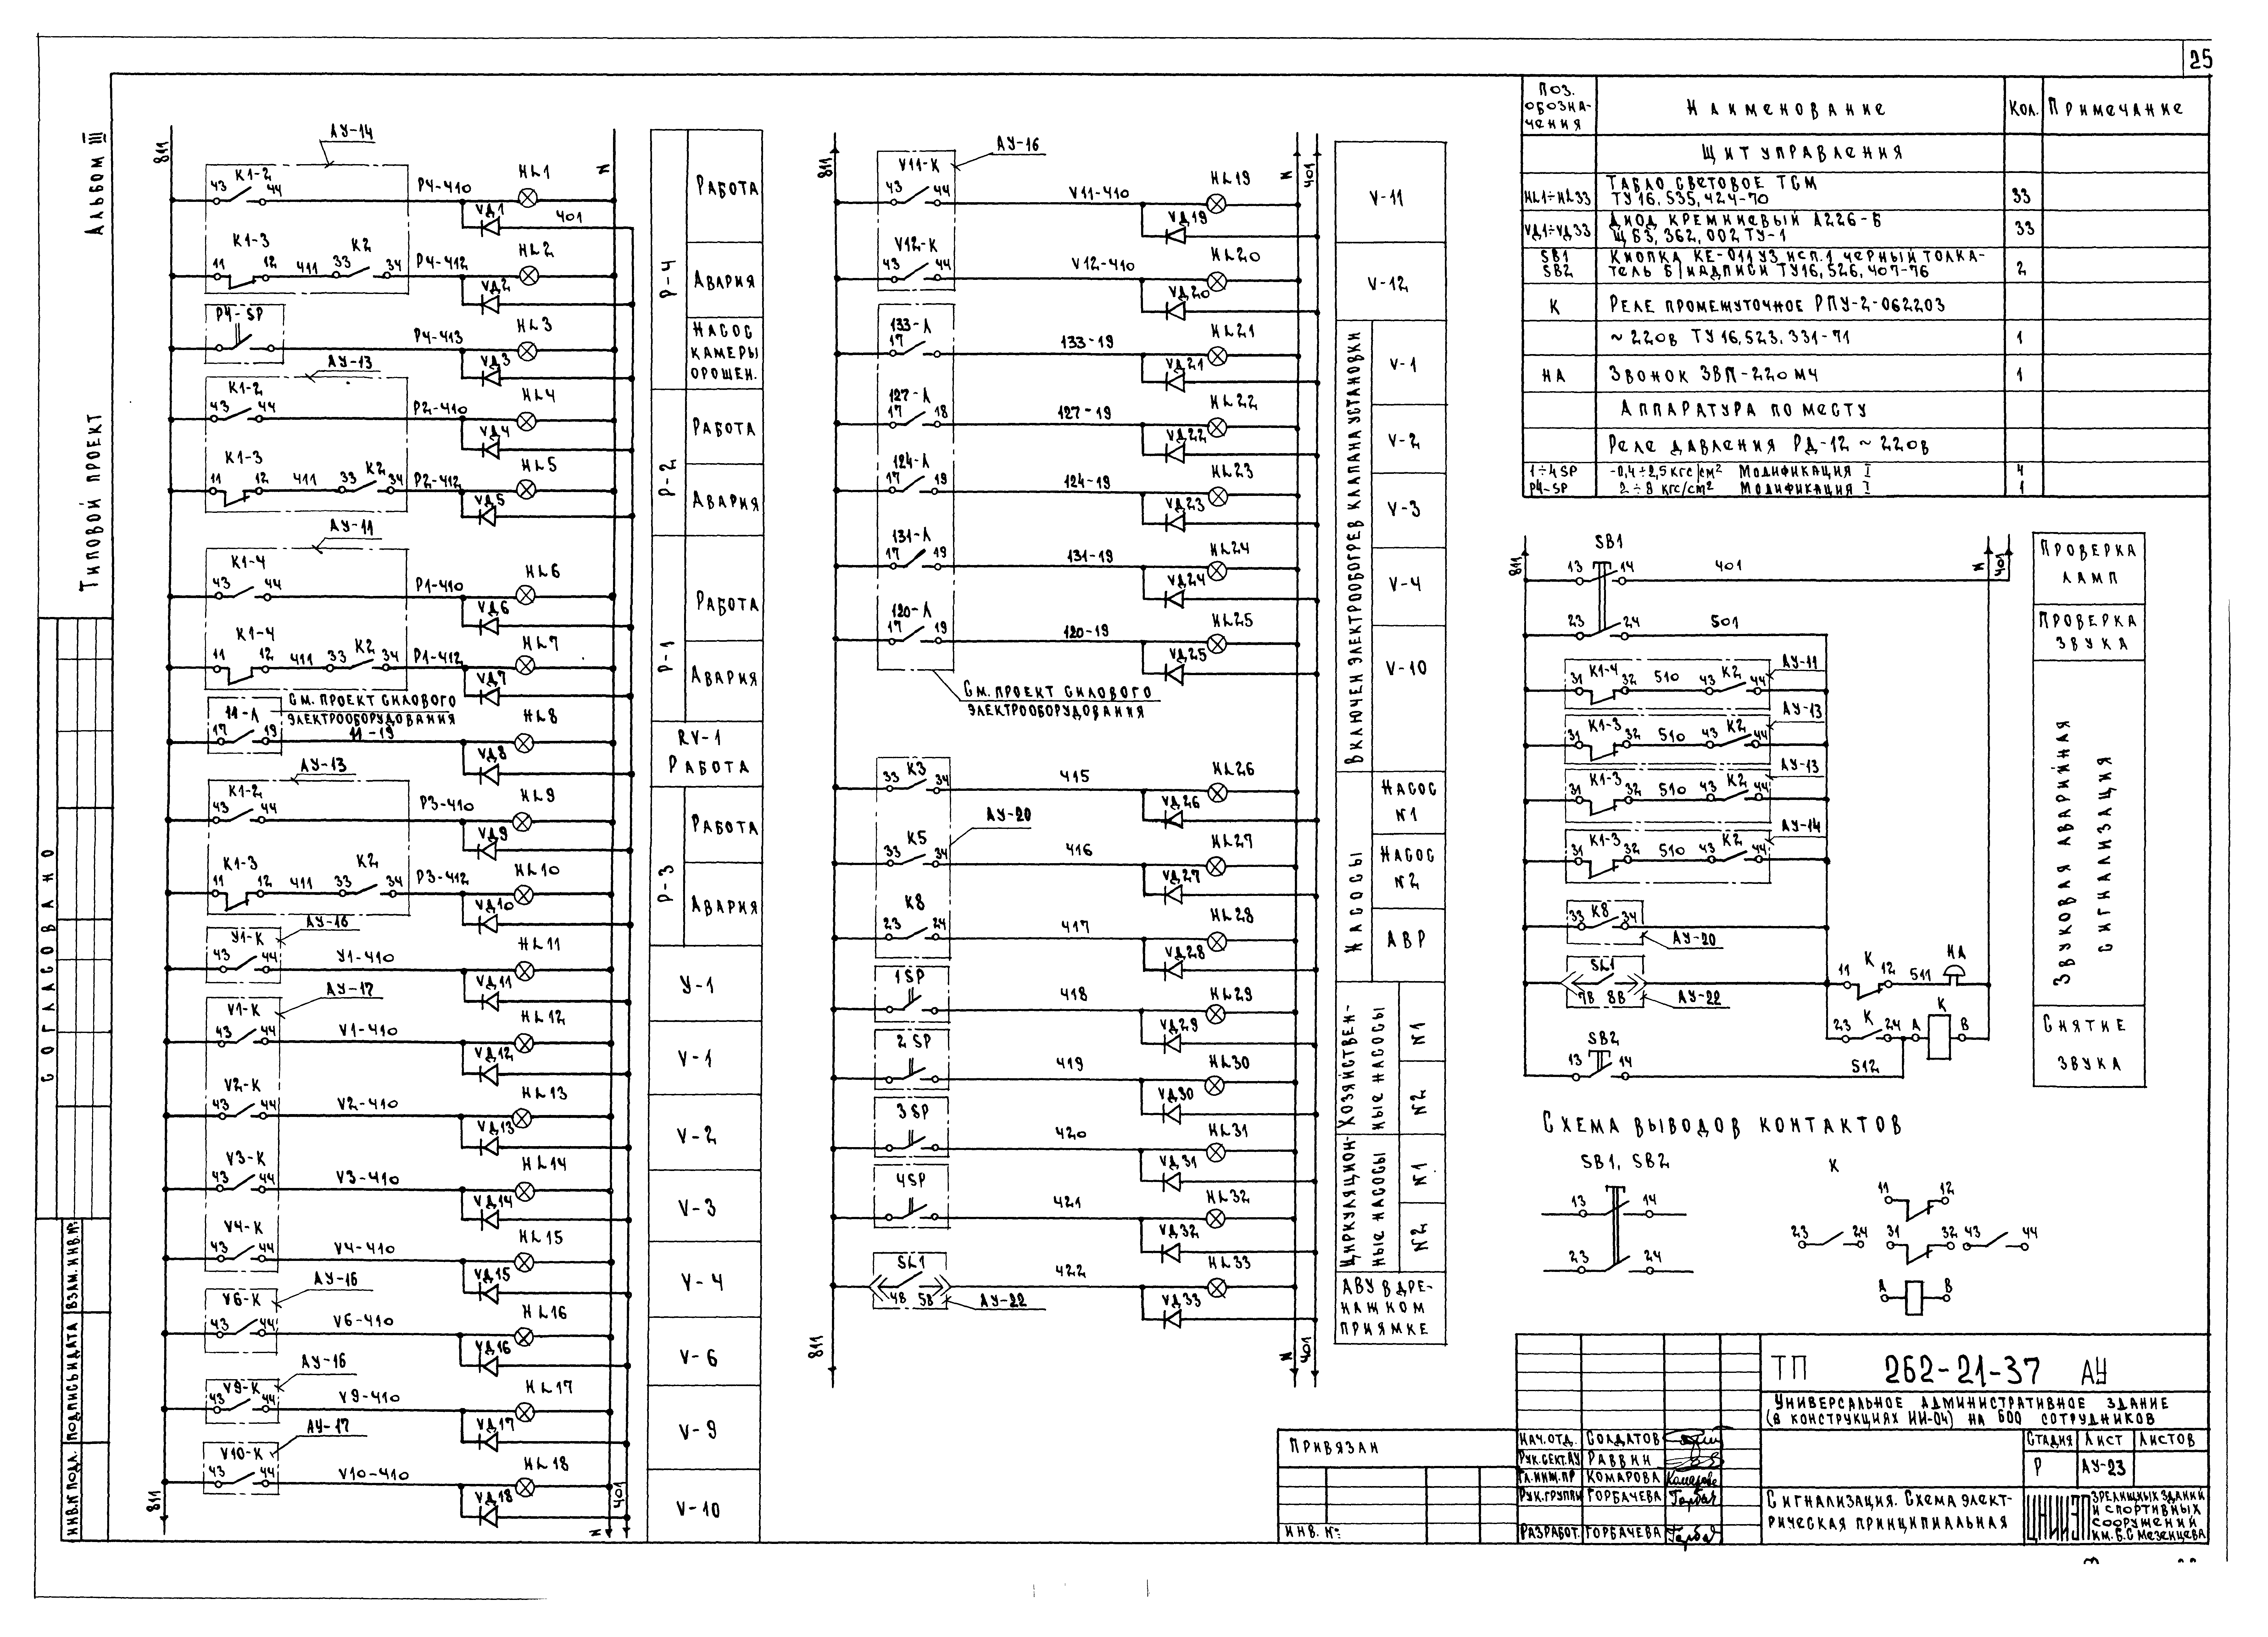 25
Альбом III
Типовой проект
СОГЛАСОВАНО
ВЗАМ. ИНВ. №
ПОДПИСЬ И ДАТА
ИНВ. № ПОДЛ.
811
N
АУ-14
К1-2
43 44
Р4-410
HL1
VД1
401
К1-3
11 12 411 33 К2 34
Р4-412
HL2
VД2
Р4-SP
Р4-413
HL3
VД3
АУ-13
К1-2
43 44
Р2-410
HL4
VД4
К1-3
11 12 411 33 К2 34
Р2-412
HL5
VД5
АУ-11
К1-4
43 44
Р1-410
HL6
VД6
К1-4
11 12 411 33 К2 34
Р1-412
HL7
VД7
11-Л
См. проект силового
электрооборудования
17 19
11-19
HL8
VД8
АУ-13
К1-2
43 44
Р3-410
HL9
VД9
К1-3
11 12 411 33 К2 34
Р3-412
HL10
VД10
АУ-16
У1-К
43 44
У1-410
HL11
VД11
АУ-17
V1-К
43 44
V1-410
HL12
VД12
V2-К
43 44
V2-410
HL13
VД13
V3-К
43 44
V3-410
HL14
VД14
V4-К
43 44
V4-410
HL15
VД15
АУ-16
V6-К
43 44
V6-410
HL16
VД16
АУ-16
V9-К
43 44
V9-410
HL17
VД17
АУ-17
V10-К
43 44
V10-410
HL18
VД18
811
N
401
Р-4
Работа
Авария
Насос
камеры
орошен.
Р-2
Работа
Авария
Р-1
Работа
Авария
RV-1
Работа
Р-3
Работа
Авария
У-1
V-1
V-2
V-3
V-4
V-6
V-9
V-10
811
N
401
АУ-16
V11-К
43 44
V11-410
HL19
VД19
V12-К
43 44
V12-410
HL20
VД20
133-Л
17
133-19
HL21
VД21
127-Л
17 18
127-19
HL22
VД22
124-Л
17 19
124-19
HL23
VД23
131-Л
17 19
131-19
HL24
VД24
120-Л
17 19
120-19
HL25
VД25
См. проект силового
электрооборудования
33 К3 34
415
HL26
VД26
АУ-20
К5
33 34
416
HL27
VД27
К8
23 24
417
HL28
VД28
1 SP
418
HL29
VД29
2 SP
419
HL30
VД30
3 SP
420
HL31
VД31
4SP
421
HL32
VД32
SL1
4В 5В
АУ-22
422
HL33
VД33
811
N
401
V-11
V-12
Включен электрообогрев клапана установки
V-1
V-2
V-3
V-4
V-10
Насосы
Насос
№1
Насос
№2
АВР
Хозяйствен-
ные насосы
№1
№2
Циркуляцион-
ные насосы
№1
№2
АВУ в дре-
нажном
приямке
Поз.
обозна-
чения
Наименование
Кол.
Примечание
Щит управления
HL1÷HL33
Табло световое ТСМ
ТУ16,535,424-70
33
VД1÷VД33
Диод кремниевый Д226-Б
ЩБ3,362,002ТУ-1
33
SB1
SB2
Кнопка КЕ-011У3 исп.1 черный толка-
тель б/надписи ТУ16,526,407-76
2
К
Реле промежуточное РПУ-2-062203
~220в ТУ16,523,331-71
1
НА
Звонок ЗВП-220МЧ
1
Аппаратура по месту
Реле давления РД-12 ~220в
1÷4SP
-0,4÷2,5кгс/см² Модификация I
4
Р4-SP
2÷8 кгс/см² Модификация I
1
811
N
401
SB1
13 14
401
23 24
501
31 К1-4 32 510 43 К2 44
АУ-11
31 К1-3 32 510 43 К2 44
АУ-13
31 К1-3 32 510 43 К2 44
АУ-13
31 К1-3 32 510 43 К2 44
АУ-14
33 К8 34
АУ-20
SL1
7В 8В
АУ-22
11 К 12 511 НА
23 К 24 А К В
SB2
13 14
512
Проверка
ламп
Проверка
звука
Звуковая аварийная
сигнализация
Снятие
звука
Схема выводов контактов
SB1, SB2
13 14
23 24
К
11 12
23 24 31 32 43 44
А В
Привязан
Инв. №:
Нач.отд. Солдатов
Рук.сект.АУ Раввин
Гл.инж.пр Комарова
Рук.группы Горбачева
Разработ. Горбачева
ТП 262-21-37 АУ
Универсальное административное здание
(в конструкциях ИИ-04) на 600 сотрудников
Стадия Лист Листов
Р АУ-23
Сигнализация. Схема элект-
рическая принципиальная
ЦНИИЭП
зрелищных зданий
и спортивных
сооружений
им. Б.С Мезенцева